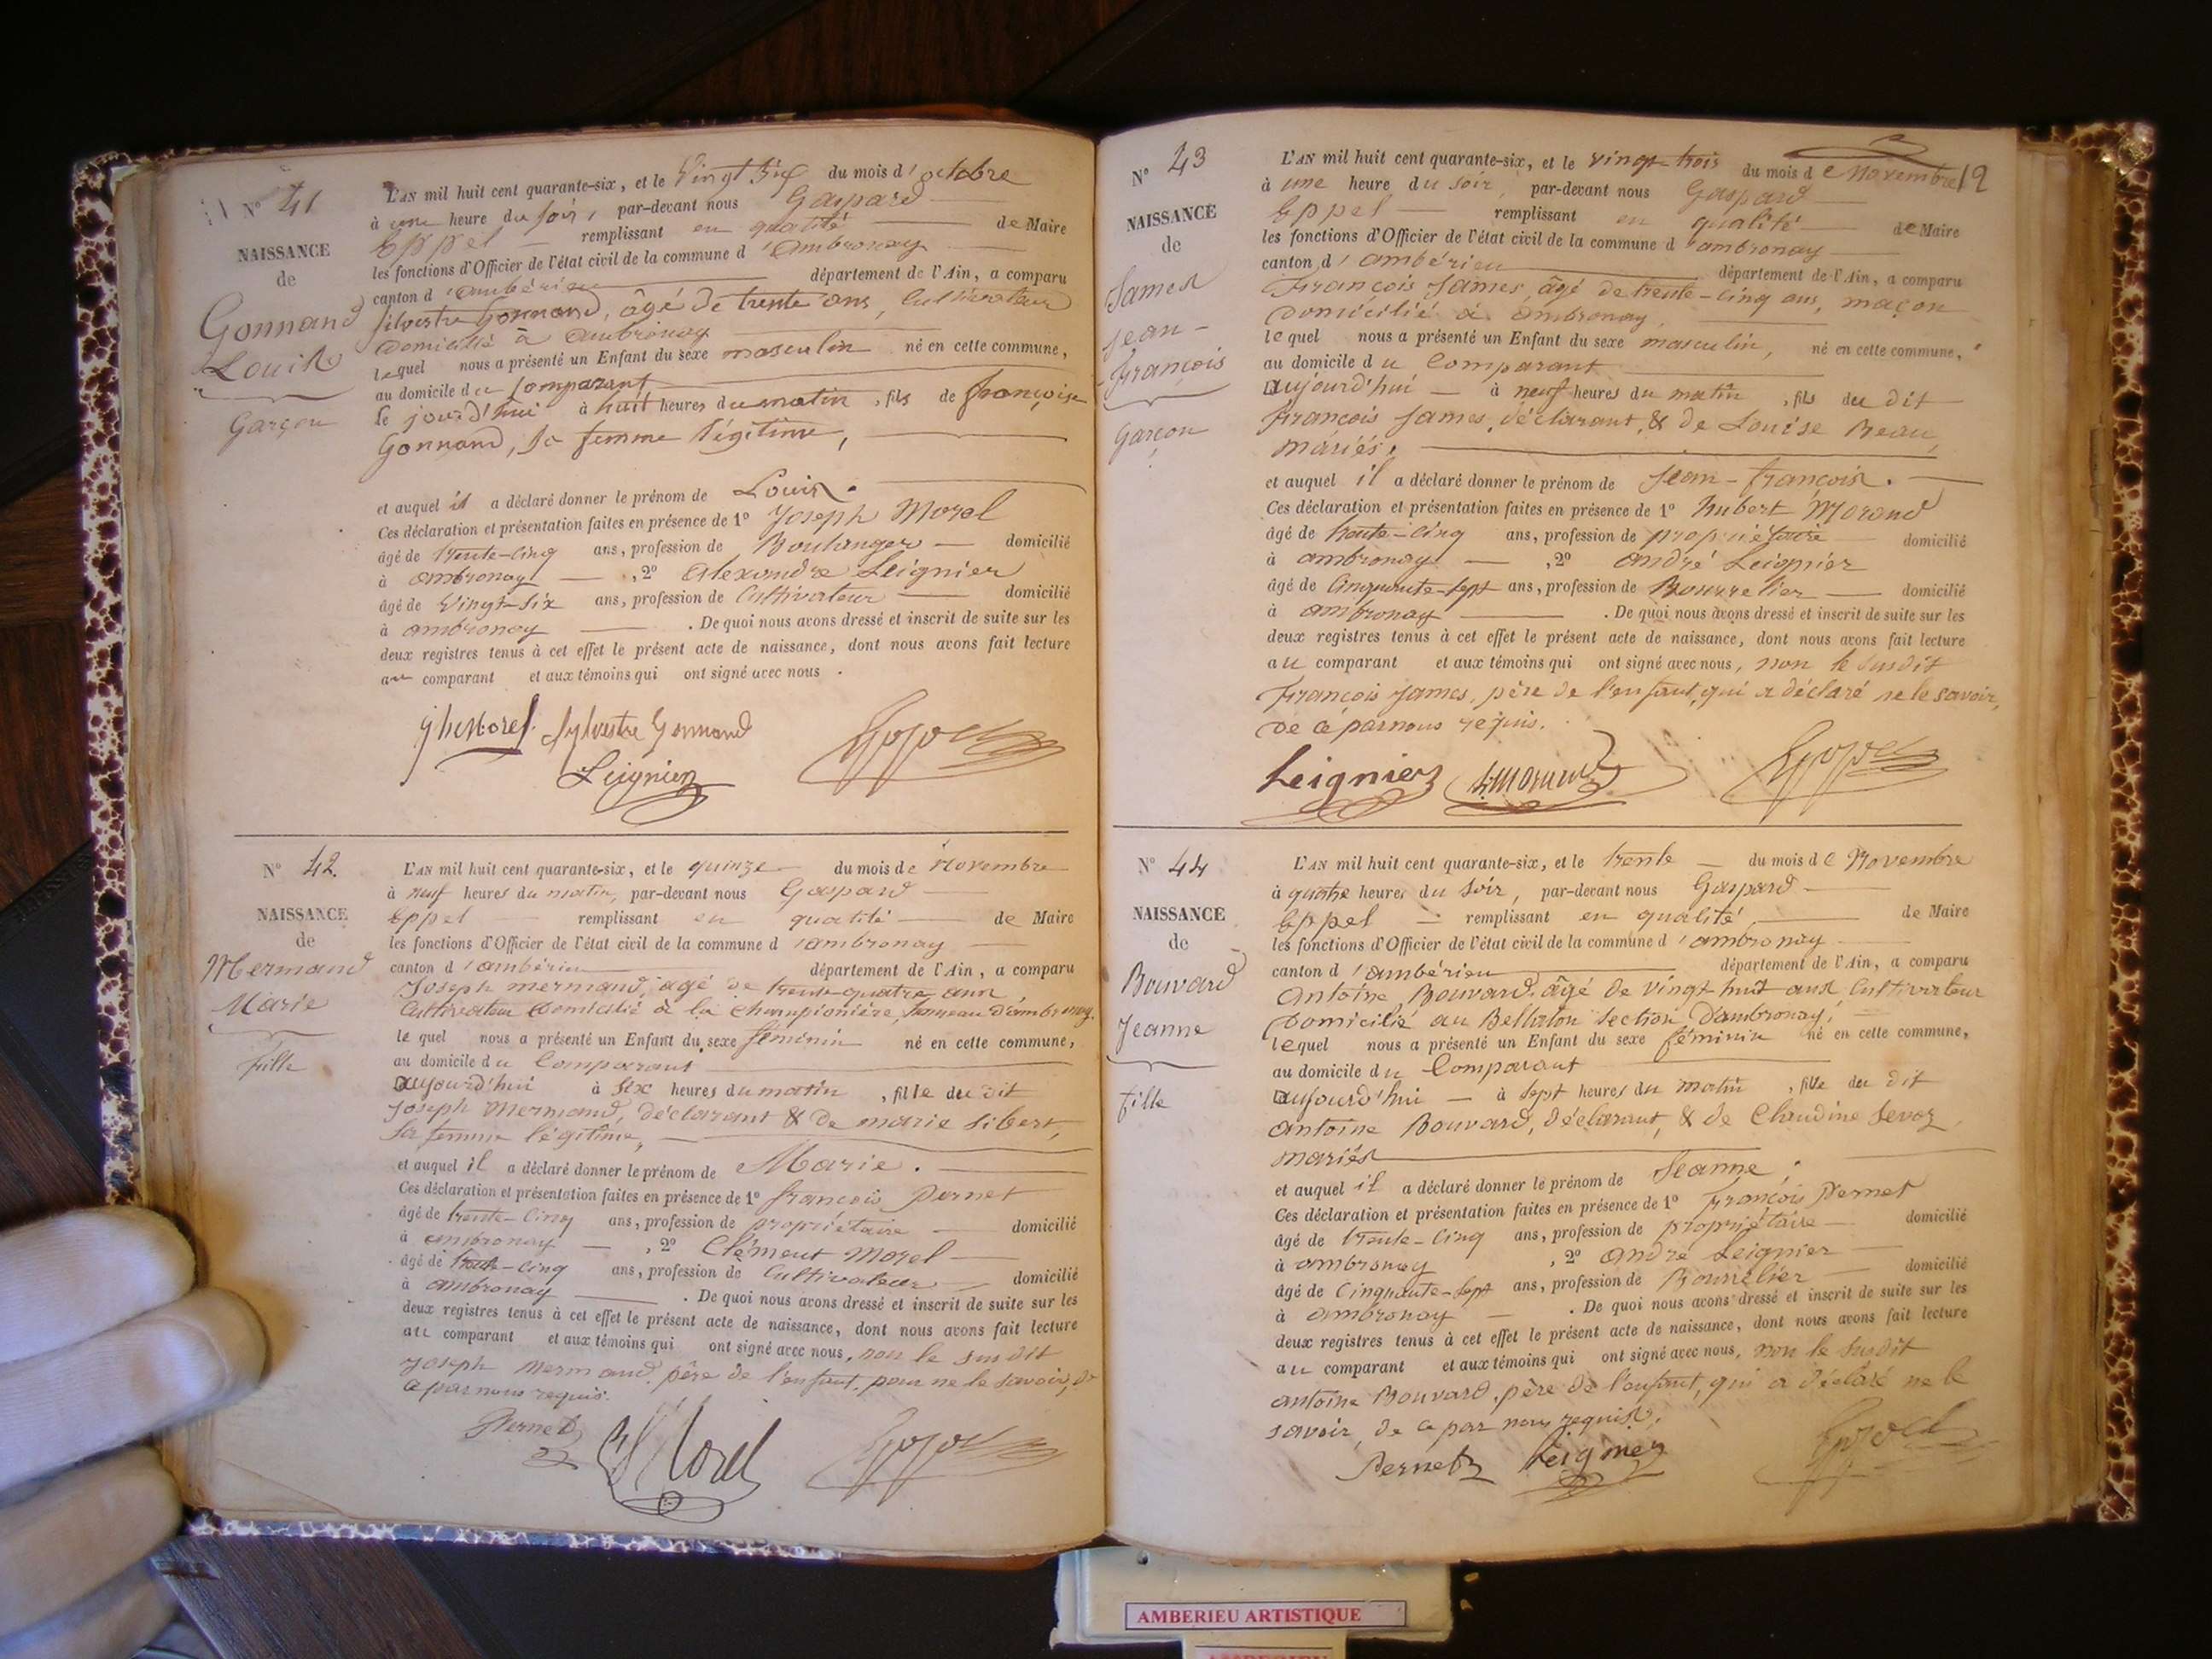 N° 41
NAISSANCE
de
Gonnand
Louis
Garçon
L'AN mil huit cent quarante-six, et le Vingt Six du mois d'octobre
à une heure du soir, par-devant nous Gaspard
Eppel remplissant en qualité de Maire
les fonctions d'Officier de l'état civil de la commune d'ambronay
canton d'ambérieu département de l'Ain, a comparu
Silvestre Gonnand, âgé de trente ans, Cultivateur
domicilié à ambronay
lequel nous a présenté un Enfant du sexe masculin né en cette commune,
au domicile du Comparant
le jourd'hui à huit heures du matin, fils de françoise
Gonnand, sa femme légitime,
et auquel il a déclaré donner le prénom de Louis.
Ces déclaration et présentation faites en présence de 1° Joseph Morel
âgé de trente-cinq ans, profession de Boulanger domicilié
à ambronay, 2° Alexandre Leignier
âgé de Vingt-six ans, profession de Cultivateur domicilié
à ambronay. De quoi nous avons dressé et inscrit de suite sur les
deux registres tenus à cet effet le présent acte de naissance, dont nous avons fait lecture
au comparant et aux témoins qui ont signé avec nous.
Morel Sylvestre Gonnand Eppel
Leignier
N° 42.
NAISSANCE
de
Mermand
Marie
fille
L'AN mil huit cent quarante-six, et le quinze du mois de Novembre
à neuf heures du matin, par-devant nous Gaspard
Eppel remplissant en qualité de Maire
les fonctions d'Officier de l'état civil de la commune d'ambronay
canton d'ambérieu département de l'Ain, a comparu
Joseph mermand, âgé de trente quatre ans,
Cultivateur domicilié à la Championière, hameau d'ambronay.
lequel nous a présenté un Enfant du sexe féminin né en cette commune,
au domicile du Comparant
aujourd'hui à six heures du matin, fille du dit
Joseph Mermand, déclarant & de marie Sibert,
sa femme légitime,
et auquel il a déclaré donner le prénom de Marie.
Ces déclaration et présentation faites en présence de 1° françois Pernet
âgé de trente-cinq ans, profession de propriétaire domicilié
à ambronay, 2° Clément Morel
âgé de trente-cinq ans, profession de Cultivateur domicilié
à ambronay. De quoi nous avons dressé et inscrit de suite sur les
deux registres tenus à cet effet le présent acte de naissance, dont nous avons fait lecture
au comparant et aux témoins qui ont signé avec nous, non le susdit
Joseph Mermand, père de l'enfant, pour ne le savoir, de
ce par nous requis.
Pernet Morel Eppel
N° 43
NAISSANCE
de
James
Jean-
François
Garçon
12
L'AN mil huit cent quarante-six, et le vingt-trois du mois de Novembre
à une heure du soir, par-devant nous Gaspard
Eppel remplissant en qualité de Maire
les fonctions d'Officier de l'état civil de la commune d'ambronay
canton d'ambérieu département de l'Ain, a comparu
François James, âgé de trente-cinq ans, maçon
domicilié à ambronay,
lequel nous a présenté un Enfant du sexe masculin, né en cette commune,
au domicile du Comparant
aujourd'hui à neuf heures du matin, fils du dit
François James, déclarant, & de Louise Beau,
mariés.
et auquel il a déclaré donner le prénom de Jean-François.
Ces déclaration et présentation faites en présence de 1° hubert Morand
âgé de trente-cinq ans, profession de propriétaire domicilié
à ambronay, 2° andré Leignier
âgé de Cinquante-sept ans, profession de Bourrelier domicilié
à ambronay. De quoi nous avons dressé et inscrit de suite sur les
deux registres tenus à cet effet le présent acte de naissance, dont nous avons fait lecture
au comparant et aux témoins qui ont signé avec nous, non le susdit
François James, père de l'enfant, qui a déclaré ne le savoir,
de ce par nous requis.
Leignier Eppel
N° 44
NAISSANCE
de
Bouvard
Jeanne
fille
L'AN mil huit cent quarante-six, et le trente du mois de Novembre
à quatre heures du soir, par-devant nous Gaspard
Eppel remplissant en qualité de Maire
les fonctions d'Officier de l'état civil de la commune d'ambronay
canton d'ambérieu département de l'Ain, a comparu
Antoine Bouvard, âgé de vingt huit ans, Cultivateur
domicilié au Bellaton section d'ambronay,
lequel nous a présenté un Enfant du sexe féminin né en cette commune,
au domicile du Comparant
aujourd'hui à sept heures du matin, fille du dit
antoine Bouvard, déclarant, & de Claudine Sevoz,
mariés
et auquel il a déclaré donner le prénom de Jeanne.
Ces déclaration et présentation faites en présence de 1° François Pernet
âgé de trente-cinq ans, profession de propriétaire domicilié
à ambronay, 2° andré Leignier
âgé de Cinquante-sept ans, profession de Bourrelier domicilié
à ambronay. De quoi nous avons dressé et inscrit de suite sur les
deux registres tenus à cet effet le présent acte de naissance, dont nous avons fait lecture
au comparant et aux témoins qui ont signé avec nous, non le susdit
antoine Bouvard, père de l'enfant, qui a déclaré ne le
savoir, de ce par nous requis.
Pernet Leignier Eppel
AMBERIEU ARTISTIQUE